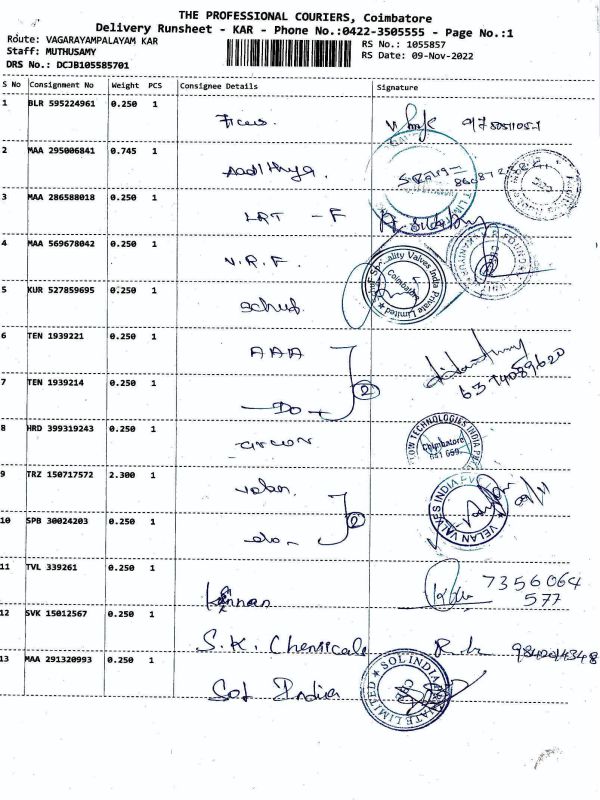 THE PROFESSIONAL COURIERS, Coimbatore
Delivery Runsheet - KAR - Phone No.:0422-3505555 - Page No.:1
Route: VAGARAYAMPALAYAM KAR
RS No.: 1055857
Staff: MUTHUSAMY
RS Date: 09-Nov-2022
DRS No.: DCJB105585701
S No Consignment No Weight PCS Consignee Details Signature
1 BLR 595224961 0.250 1
2 MAA 295006841 0.745 1 Aadithya.
3 MAA 286588018 0.250 1 LRT - F
4 MAA 569678042 0.250 1 N.R.F.
5 KUR 527859695 0.250 1
6 TEN 1939221 0.250 1 AAA
7 TEN 1939214 0.250 1 -Do- 2 6374089620
8 HRD 399319243 0.250 1
9 TRZ 150717572 2.300 1
10 SPB 30024203 0.250 1 -do- 2
11 TVL 339261 0.250 1 Kannan 7356064
577
12 SVK 15012567 0.250 1 S.K. Chemicals 9842014348
13 MAA 291320993 0.250 1 Sol India
Valves India Private Limited
Coimbatore
TECHNOLOGIES INDIA
Coimbatore
VELAN VALVES INDIA PVT
09/11
SOL INDIA PRIVATE LIMITED